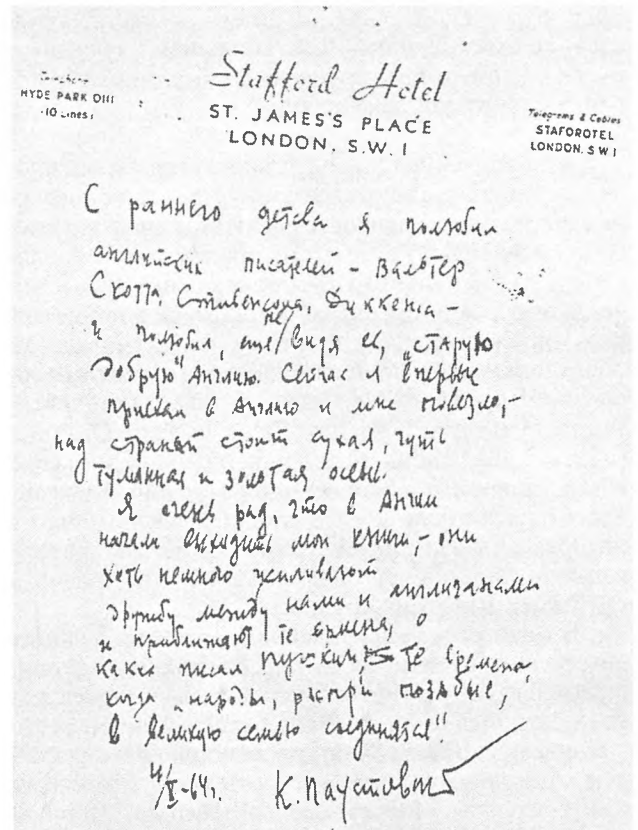 Stafford Hotel
HYDE PARK 0111
ST. JAMES'S PLACE
LONDON, S.W. 1
Telegrams & Cables
STAFOROTEL
LONDON. S W 1
С раннего детства я полюбил
английских писателей – Вальтер
Скотта, Стивенсона, Диккенса –
и полюбил, еще не видя её, „старую
добрую" Англию. Сейчас я впервые
приехал в Англию и мне повезло, –
над страной стоит сухая, чуть
туманная и золотая осень.
Я очень рад, что в Англии
начали выходить мои книги, – они
хоть немного усиливают
дружбу между нами и англичанами
и приближают те времена, о
каких писал Пушкин, те времена,
когда „народы, распри позабыв,
в великую семью соединятся"
-64 г.
К. Паустовский